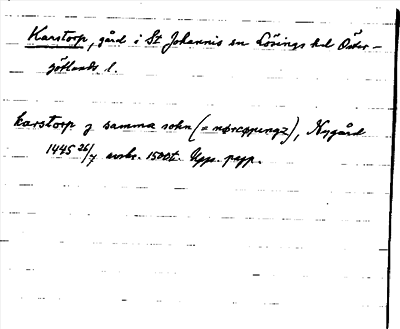 Karstorp, gård i St Johannis en Lösings hd Öster-
götlands l.
karstorp j samma sokn (= nørcopungz), Nygård
1445 26/7 avskr. 1500t. Upps. papp.